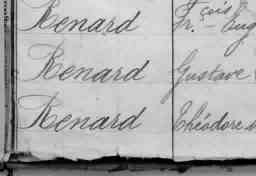 Renard Fr.çois Eug
Renard Gustave
Renard Théodore